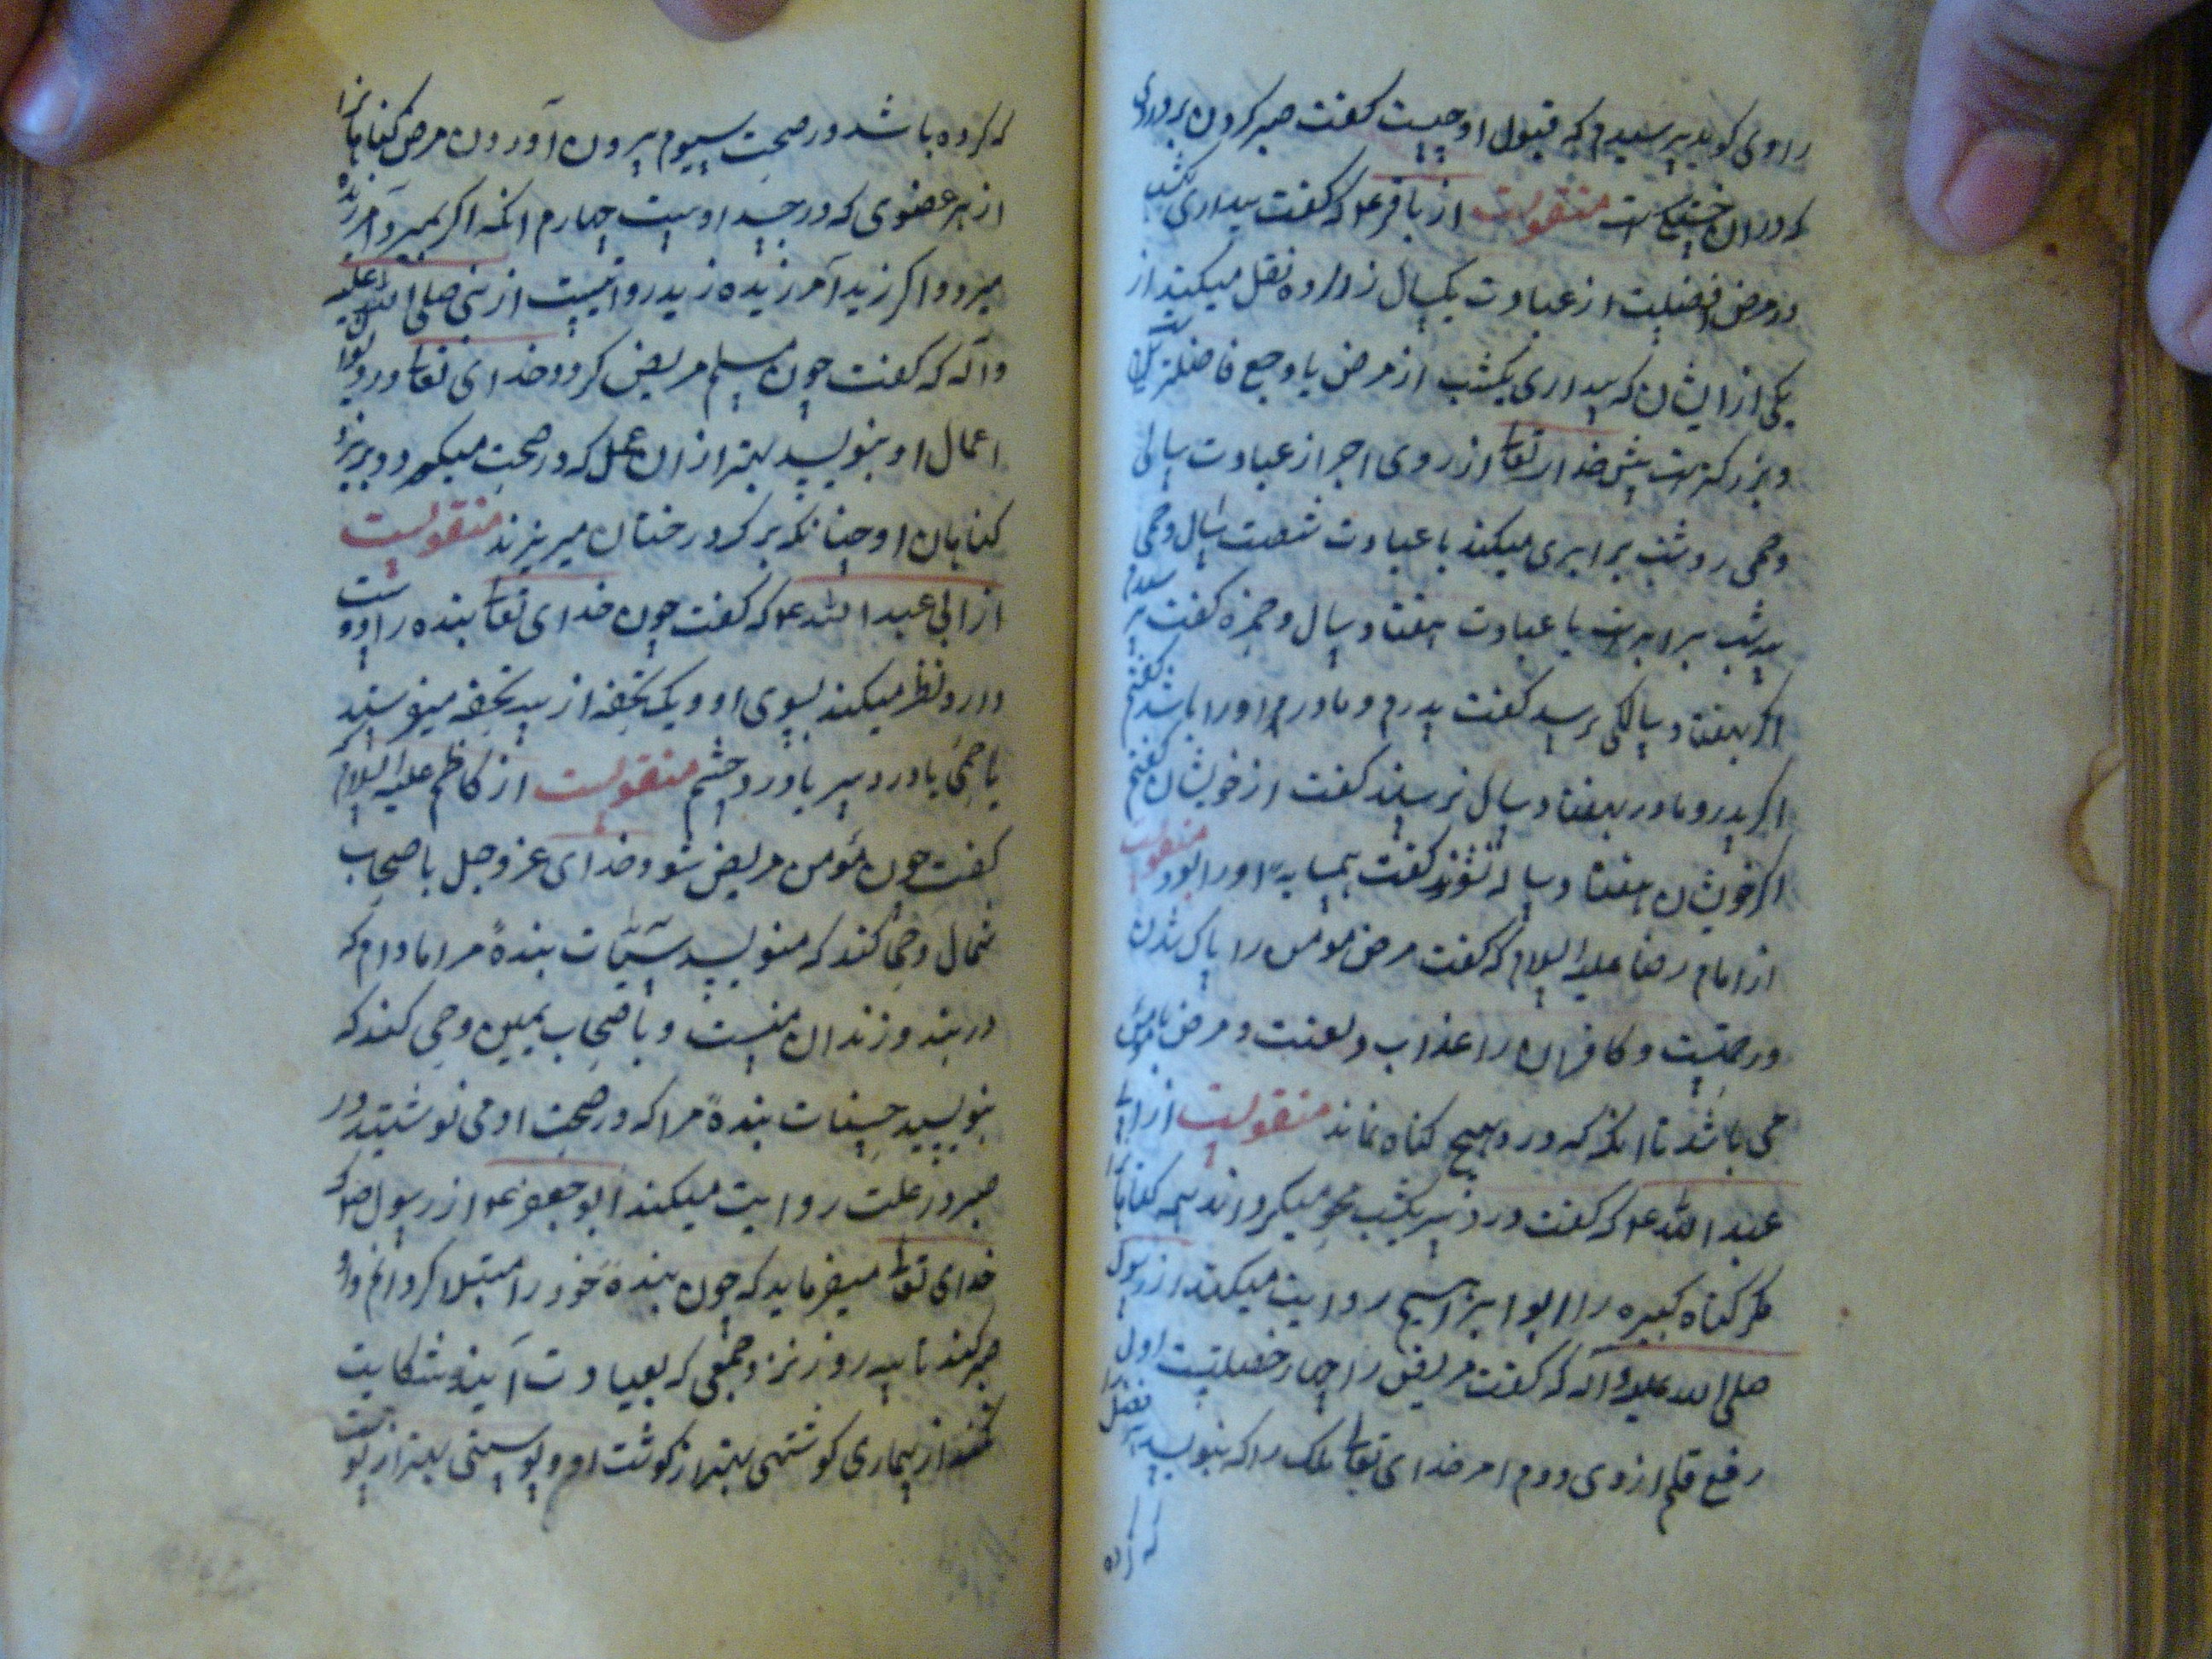 راوی کوید پرسیدم که قبول او چیست کفت صبر کردن بر دردی
که در آن خفته است منقولست از باقر ع که کفت بیداری یکشب
در مرض افضلست از عبادت یکسال زراره نقل میکند از
یکی از ایشان که بیداری یکشب از مرض یا وجع فاضلتر
و بزرکترست پیش خدای تعالی از روی اجر از عبادت سالی
و حمی روشب برابری میکند با عبادت شصت سال و حمی
سه شب برابرست با عبادت هفتاد سال و حمزه کفت
اکر بهفتاد سالکی نرسد کفت پدرم و مادرم او را باشد کفتم
اکر پدر و مادر بهفتاد سال نرسند کفت از خویشان کفتم
اکر خویشان هفتاد ساله نشوند کفت همسایه او را بود منقولست
از امام رضا علیه السلام که کفت مرض مومن را پاک شدن
و رحتست و کافران را عذاب و لعنت و مرض با مؤمن
می باشد تا انکه که در و هیچ کناه نماند منقولست از ابی
عبد الله ع که کفت درد سر یکشب محو میکرداند همه کناهان
مکر کناه کبیره را ابو ابراهیم روایت میکند از رسول
صلی الله علیه و آله که کفت مریض را چهار خصلتست اول
رفع قلم از وی دوم امر خدای تعالی ملک را که بنویسد
که کرده باشد در صحت سیوم بیرون آوردن مرض کناهان را
از هر عضوی که در جسد اوست چهارم انکه اکر بمیرد آمرزیده
میرود و اکر زید آمرزیده زید روایتست از نبی صلی الله علیه
و آله که کفت چون مسلم مریض کردد خدای تعالی
اعمال او بنویسد بهتر از ان عمل که در صحت میکرد و بریزد
کناهان او چنانکه برک درختان میریزند منقولست
از ابی عبد الله ع که کفت چون خدای تعالی بنده را دوست
دارد نظر میکند بسوی او و یک تحفه از سه تحفه میفرستد
یا حمی یا درد سر یا درد چشم منقولست از کاظم علیه السلام که
کفت چون مؤمن مریض شود خدای عز و جل باصحاب
شمال وحی کند که منویسید سیئات بندهٔ مرا مادام که
در بند و زندان منست و باصحاب یمین وحی کند که
بنویسید حسنات بندهٔ مرا که در صحت او می نوشتید در
صبر در علت روایت میکند ابو جعفر ع از رسول ص که
خدای تعالی میفرماید که چون بندهٔ خود را مبتلا کردانم و او
صبر کند تا سه روز نزد جمعی که بعیادت آیند شکایت
نکند از بیماری کوشتهی بهتر از کوشت او و پوستی بهتر از پوست